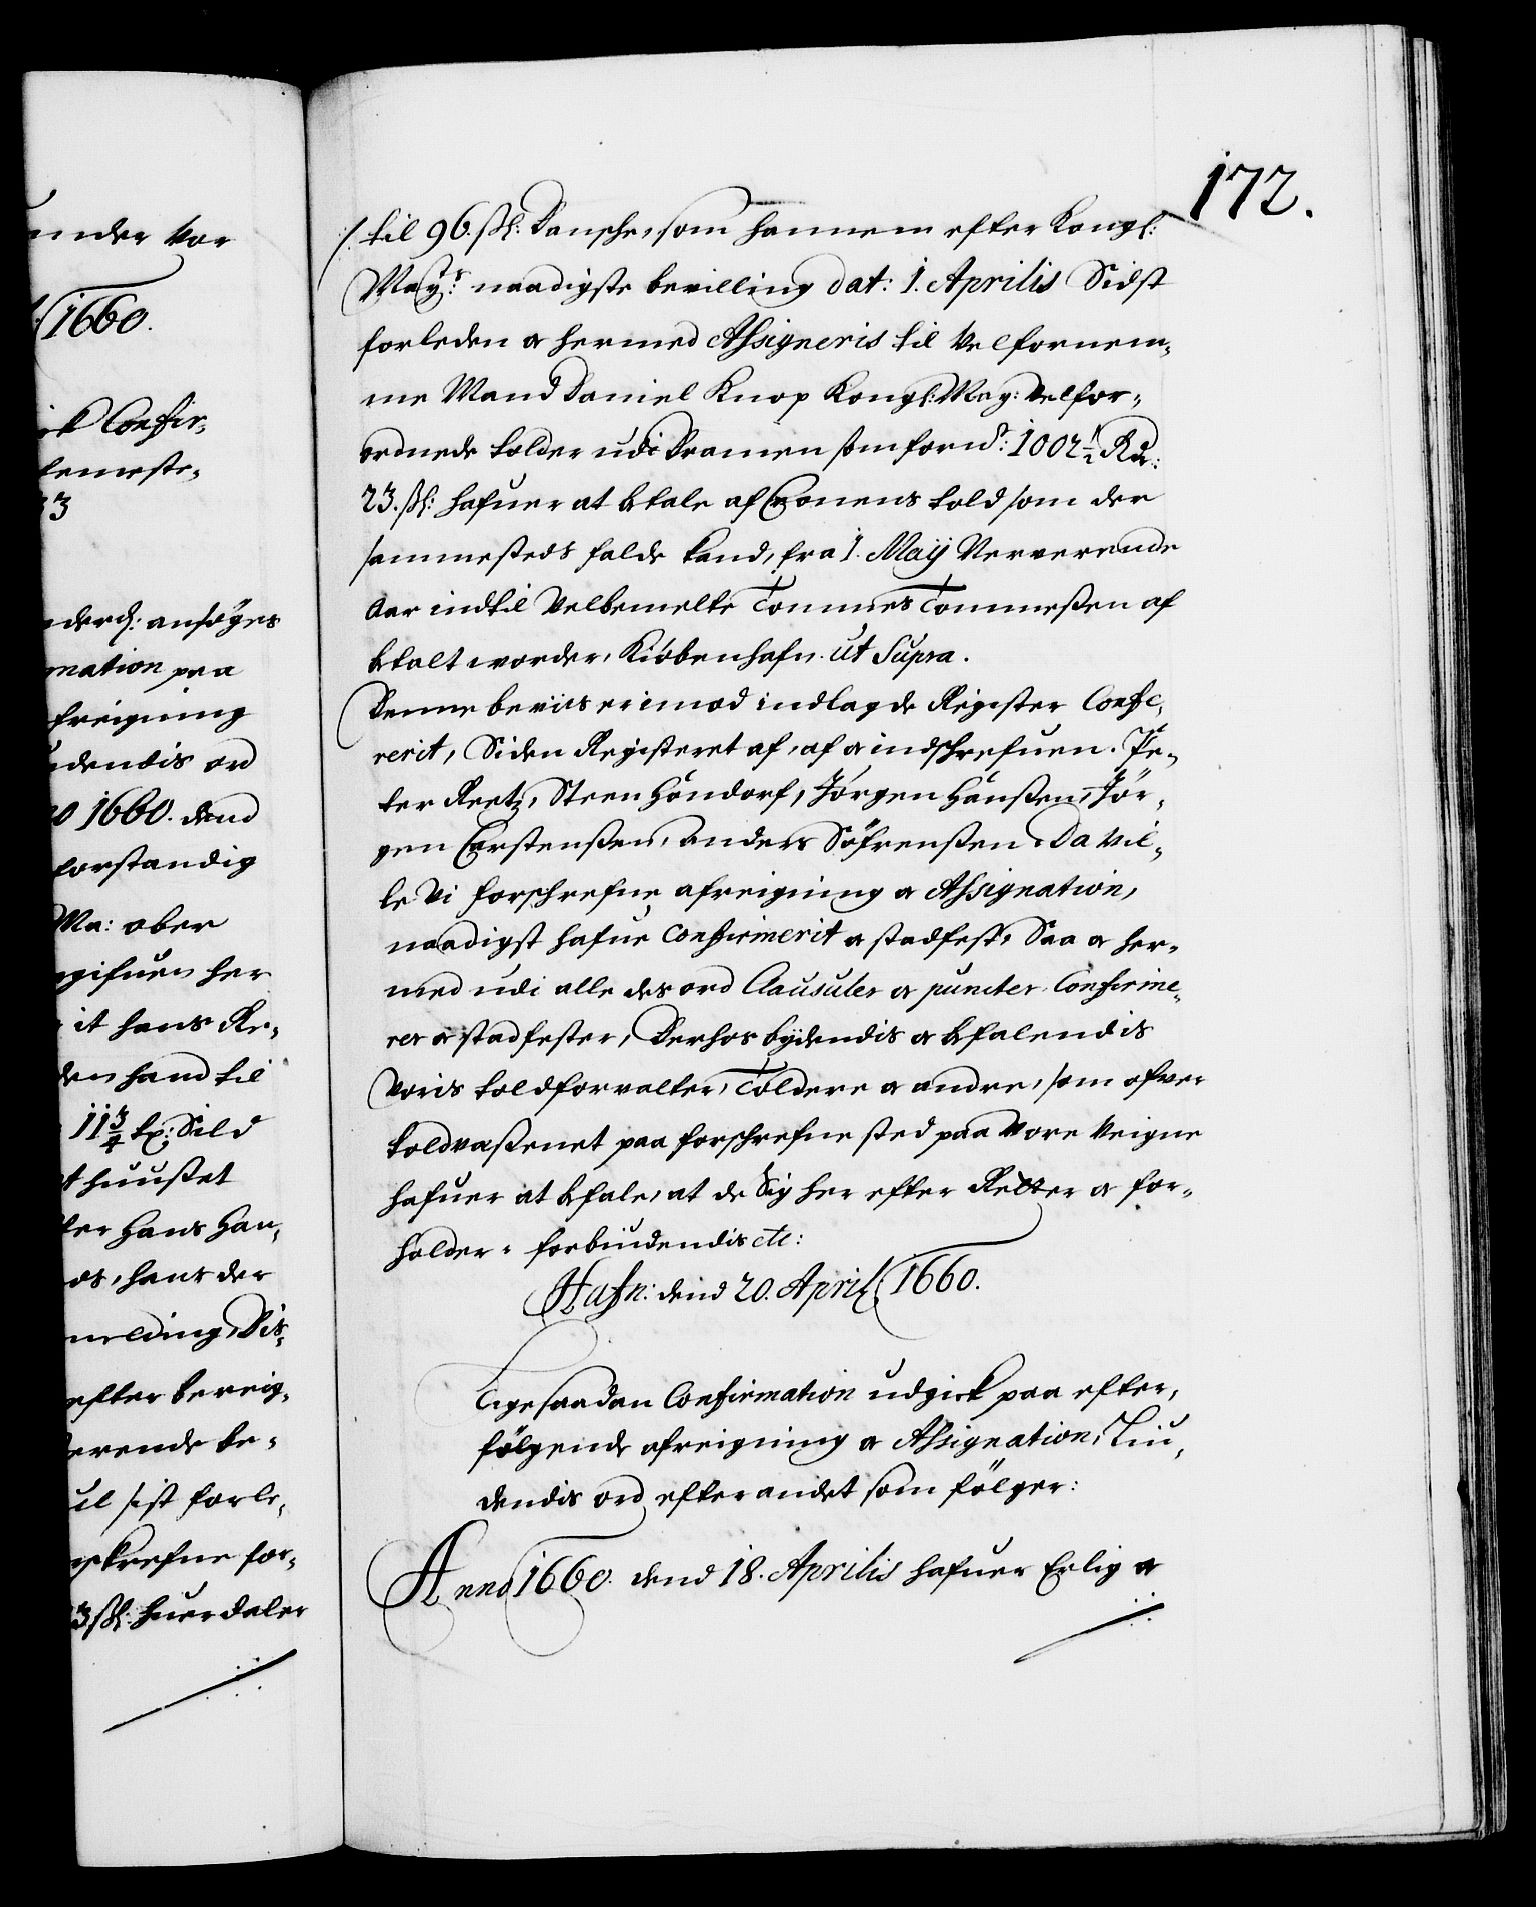 172.
/: til 96. ßl: Dansche, som hannem efter Kongl:
Mayts: naadigste bevilling dat: 1. Aprilis Sidst
forleden og hermed Assigneris til Velfornem-
me Mand Daniel Knop Kongl: May: Velfor-
ordnede tolder udi Dramen som fornd: 1002 1/2 Rdr:
23. ßl: hafuer at betale af Cronens told som der
sammesteds falde kand, fra 1. Maij Nerverende
Aar indtil Velbemelte Tommes Tommeßen af
betalt worder, Kiöbenhafn. Ut Supra.
Denne beviis er imod indlagde Register Confe-
rerit, Siden Registeret af, af og indschrefuen. Pe-
ter Reetz, Steen Hondorf, Jörgen Hanßen, Jör-
gen Carstenßen, Anders Söfrenßen, Da vil-
le Vi forschrefne afreigning og Assignation,
naadigst hafue Confirmerit og stadfest, Saa og her-
med udi alle des ord Clausuler og puncter Confirme-
rer og stadfester, Derhos bydendis og befalendis
Voris toldforvalter, Toldere og andre, som ofver
toldvæßenet paa forschrefne sted paa Vore Veigne
hafuer at befale, at de Sig her efter Retter og for-
holder, forbiudendis etc:
Hafn: dend 20. April 1660.
Lige saadan Confirmation udgick paa efter-
fölgende afreigning og Assignation, Liu-
dendis ord efter andet som fölger:
Anno 1660. dend 18. Aprilis hafuer Erlig og
under Vor
1660.
Confir-
temeste-
33
anföges
mation paa
freigning
udendis ord
1660. dend
forstandig
Ma: ober
gifuen her
it hans Re-
den hand til
11 3/4 Lp: Sild
t huußet
ter Hans Han-
os, hans der
melding, Dis-
efter bereig-
erende be-
ul sist forle-
skrefne for-
3 ßl: huer daler